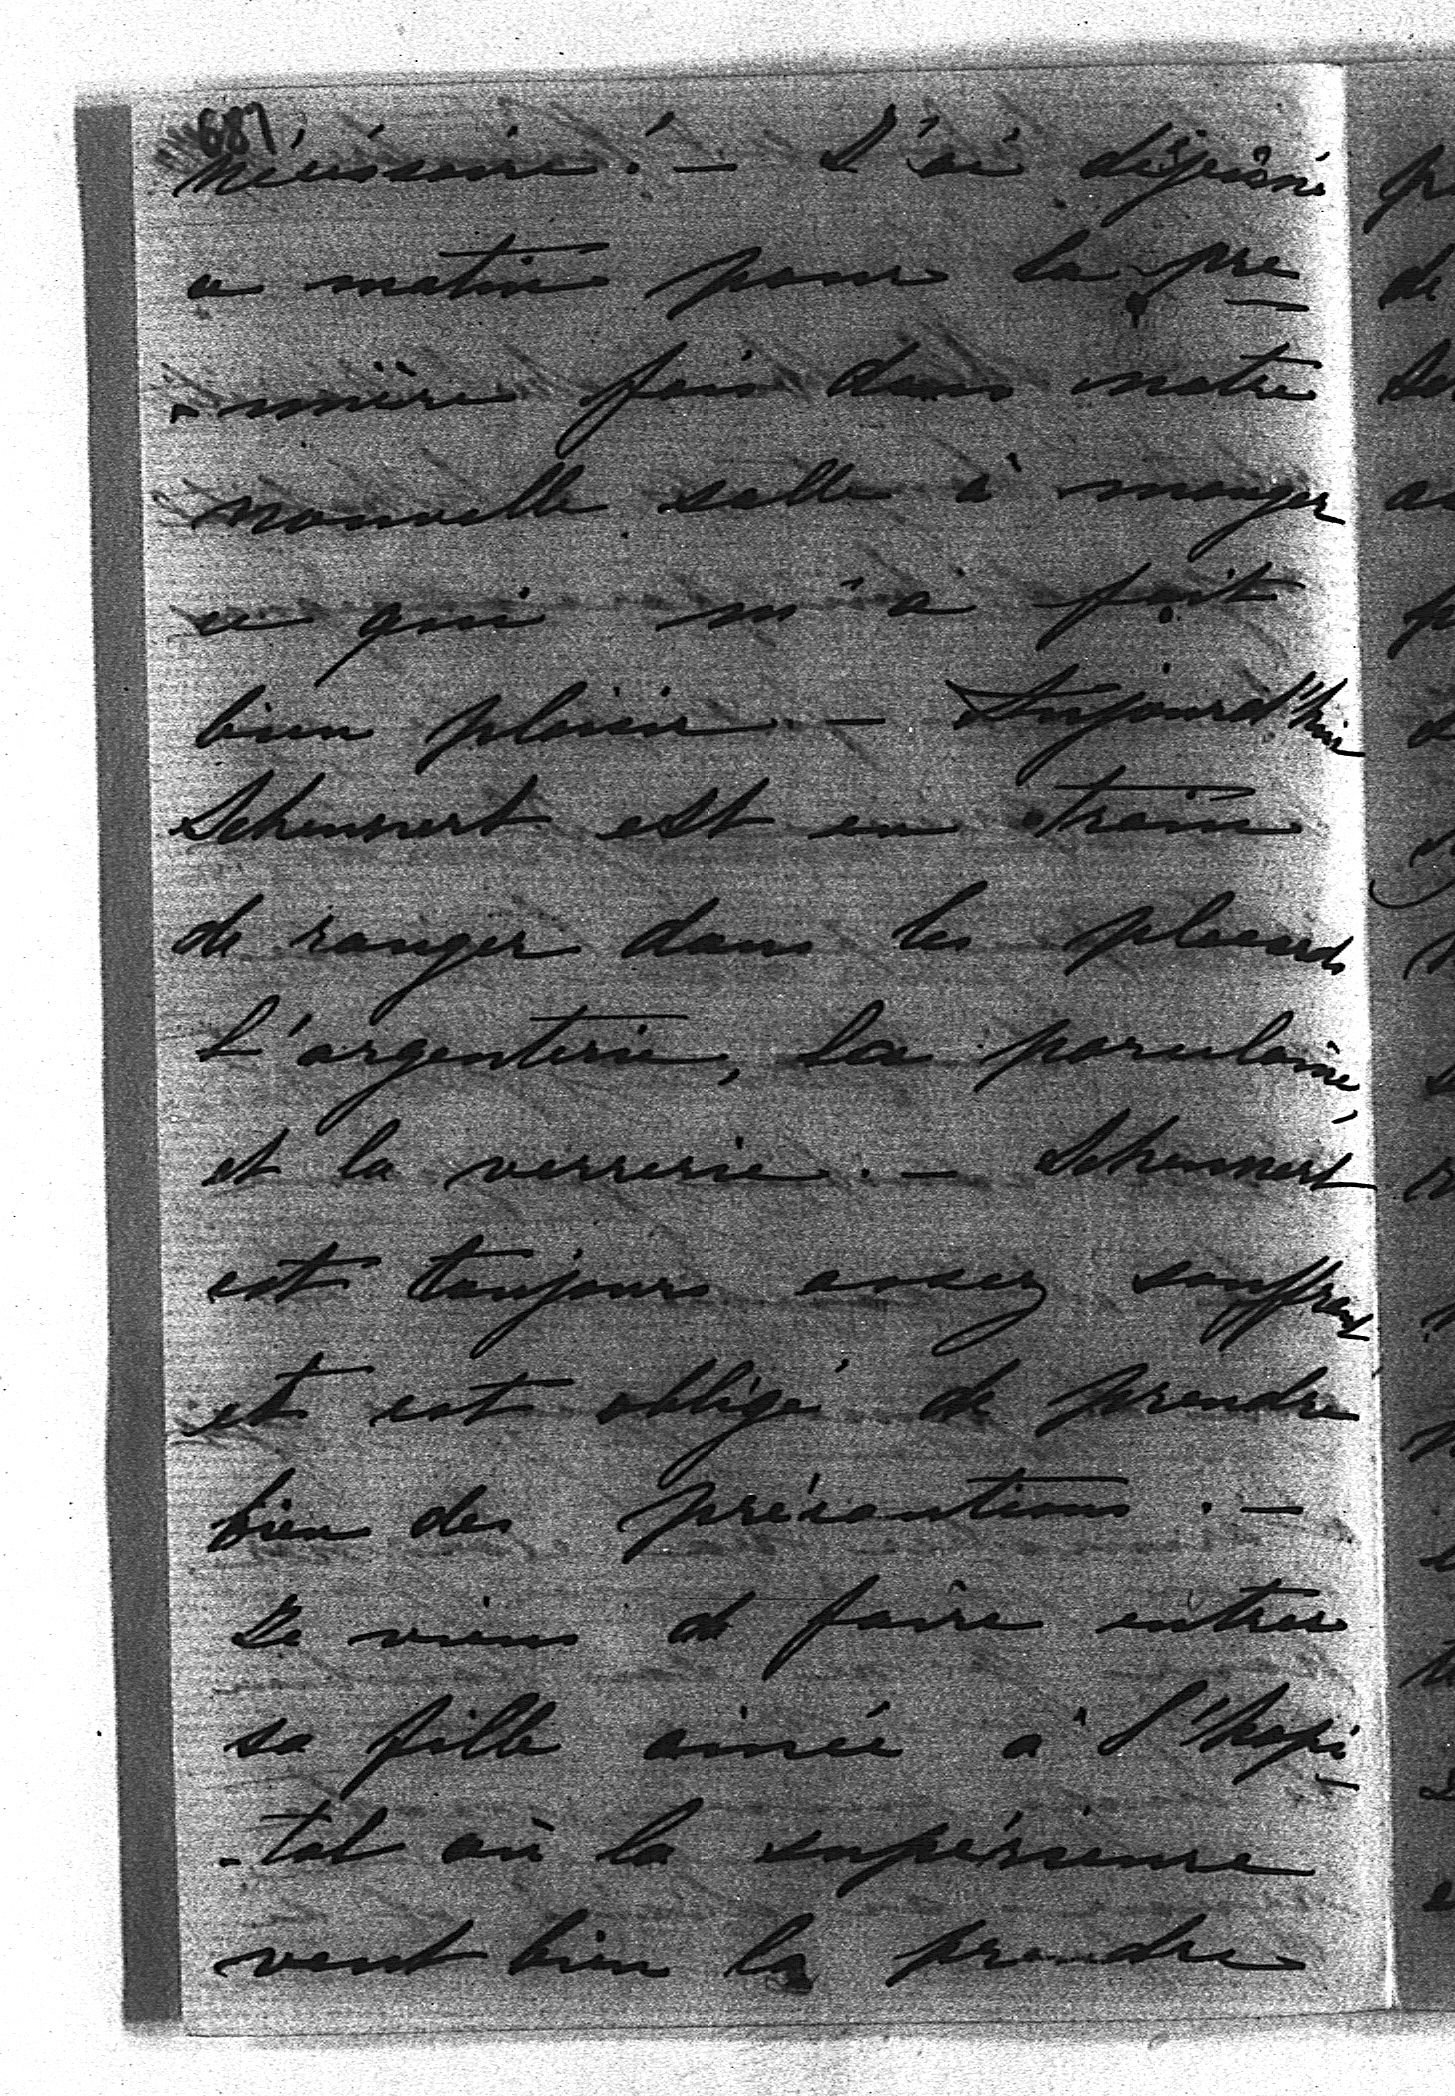 687
nécéssaire ! – J'ai déjeûné
ce matin pour la pre
-mière fois dans notre
nouvelle salle à manger
ce qui m'a fait
bien plaisir – Aujourd'hui
Scheunert est en train
de ranger dans les placards
l'argenterie, la porcelaine,
et la verrerie. – Scheunert
est toujours assez souffrant
et est obligé de prendre
bien des précautions. –
Je viens de faire entrer
sa fille ainée à l'hopi
-tal où la supérieure
veut bien la prendre